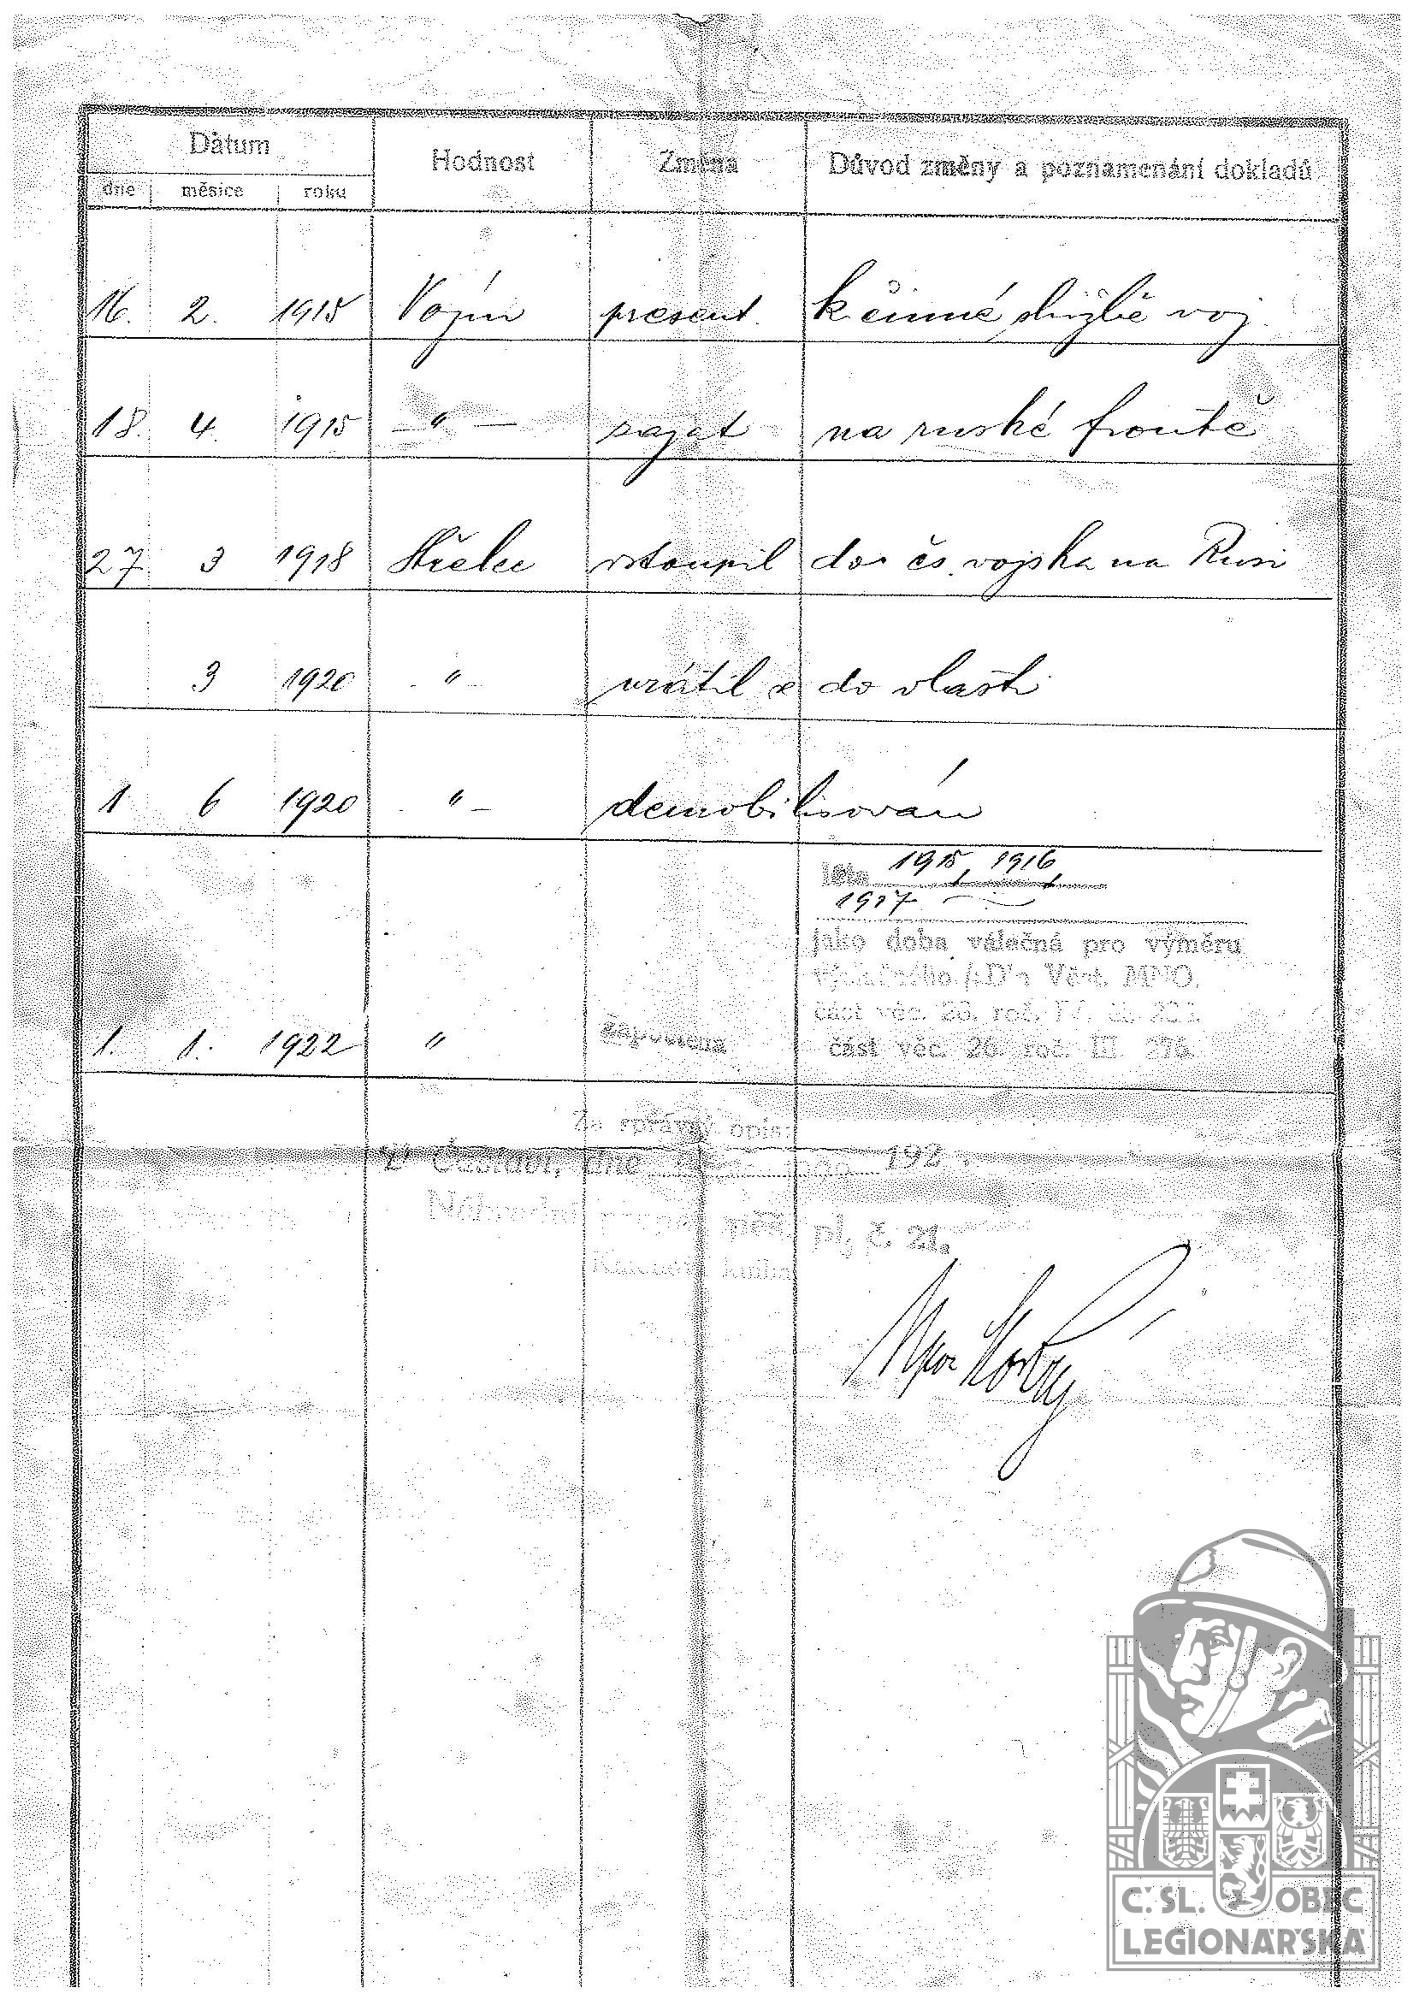 Datum Hodnost Změna Důvod změny a poznamenání dokladů
dne měsíce roku
16. 2. 1915 Vojín present. k činné službě voj.
18. 4. 1915 — " — zajat na ruské frontě
27 3 1918 Střelec vstoupil do čs. vojska na Rusi
3 1920 - " - vrátil se do vlasti
1 6 1920 - " - demobilisován
léta 1915, 1916
1917
jako doba válečná pro výměru
Věst. MNO.
část věc. 26. roč. IV. čl.
1. 1. 1922 " započtena část věc. 26. roč. III. 276.
Za správný opis:
V Čáslavi, dne 192 .
Náhradní prapor pěš. pl. č. 21.
Kmenová kniha
Č.SL. OBEC
LEGIONÁŘSKÁ